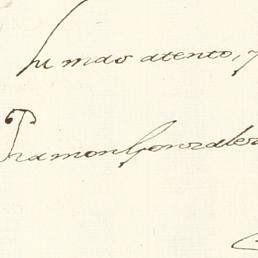 Su mas atento, y
Ramon Gonzalez